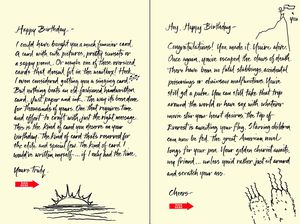 Happy Birthday -
I could have bought you a small funnier card,
A card with cute pictures, pretty sunsets or
a sappy poem... Or maybe one of those oversized
cards that doesn't fit in the mailbox! Heck,
I even considered getting you a singing card.
But nothing beats an old fashioned handwritten
card, just paper and ink. The way it's been done
for thousands of years. One that requires time,
and effort to craft with just the right message.
This is the kind of card you deserve on your
birthday. The kind of card that's reserved for
the elite and special few. The kind of card I
would've written myself.... if I only had the time.
Yours Truly -
Hey, Happy Birthday -
Congratulations! You made it. You're alive.
Once again, you've escaped the claws of death.
There have been no fatal stabbings, accidental
poisonings or chainsaw malfunctions. You've
still got a pulse. You can still take that trip
around the world or have say with whatever
movie star your heart desires. The top of
Everest is awaiting your flag. Starving children
can now be fed. The great American novel
longs for your pen. Your golden chariot awaits,
my friend.... unless you'd rather just sit around
and scratch your ass.
Cheers -
You